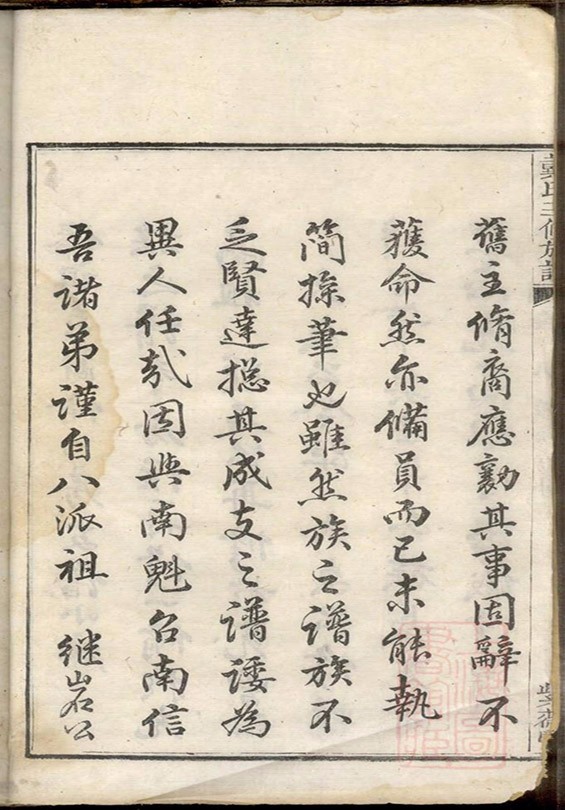 舊主脩裔應勷其事固辭不
獲命然亦備員而已未能執
簡操筆也雖然族之譜族不
乏賢達摠其成支之譜諉為
異人任哉因與南魁公南信
吾諸弟謹自八派祖 继岩公
氏三修族譜